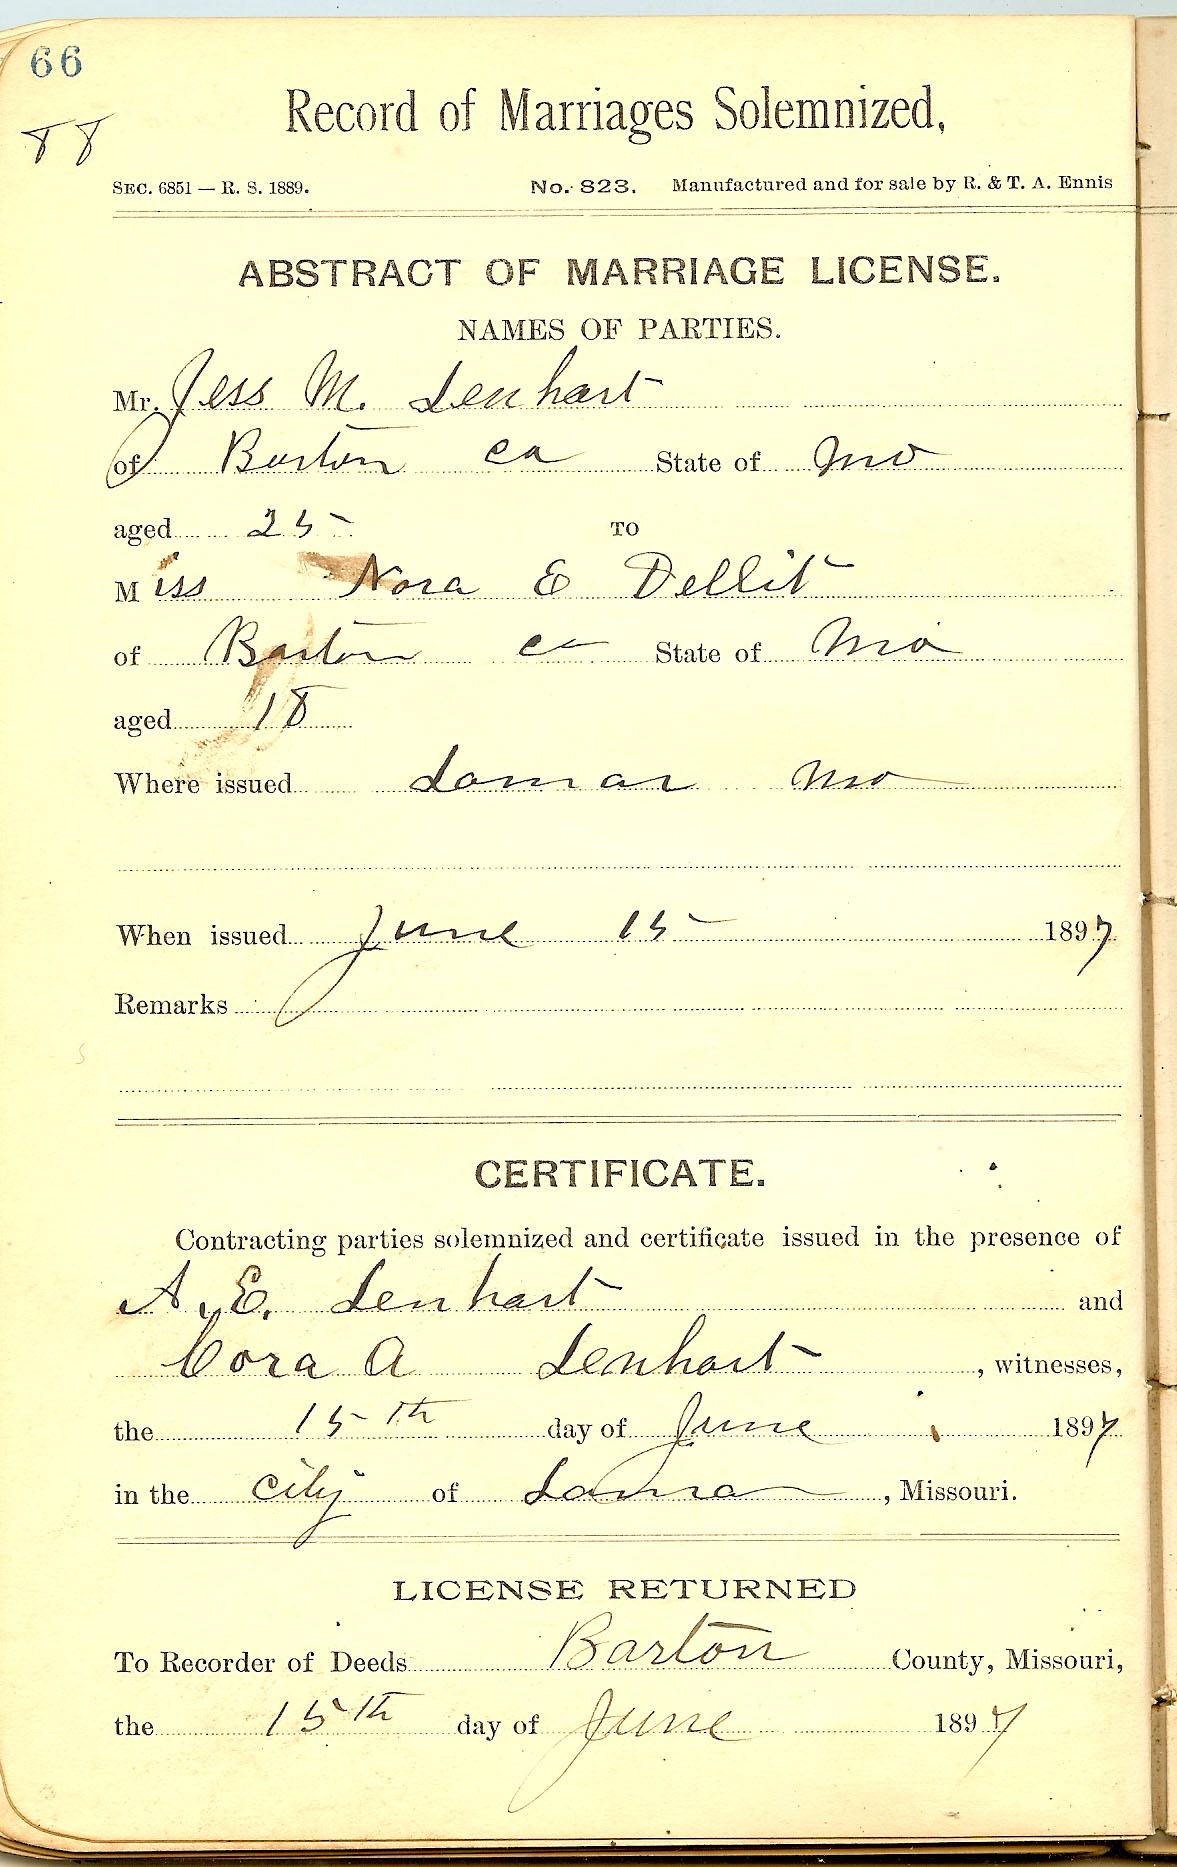 66
88
Record of Marriages Solemnized,
SEC. 6851 — R. S. 1889. No. 823. Manufactured and for sale by R. & T. A. Ennis
ABSTRACT OF MARRIAGE LICENSE.
NAMES OF PARTIES.
Mr. Jess M. Lenhart
of Barton Co State of Mo
aged 25 TO
Miss Nora E Dellit
of Barton Co State of Mo
aged 18
Where issued Lamar Mo
When issued June 15 1897
Remarks
CERTIFICATE.
Contracting parties solemnized and certificate issued in the presence of
A. E. Lenhart and
Cora A Lenhart, witnesses,
the 15th day of June 1897
in the City of Lamar, Missouri.
LICENSE RETURNED
To Recorder of Deeds Barton County, Missouri,
the 15th day of June 1897